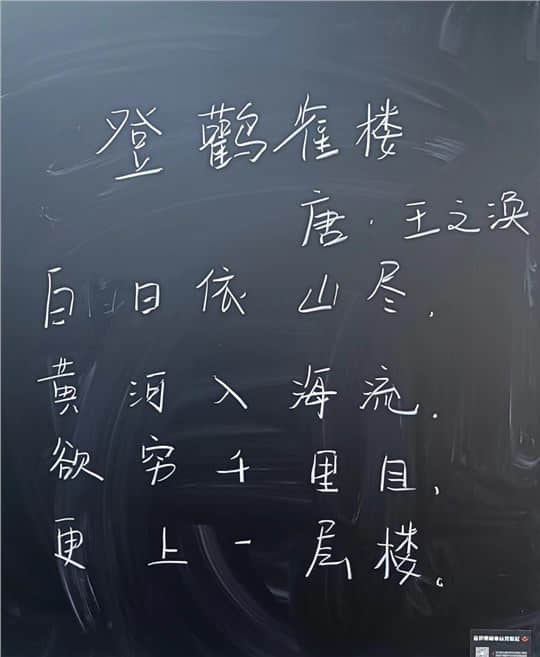 登鹳雀楼
唐·王之涣
白日依山尽,
黄河入海流.
欲穷千里目,
更上一层楼。